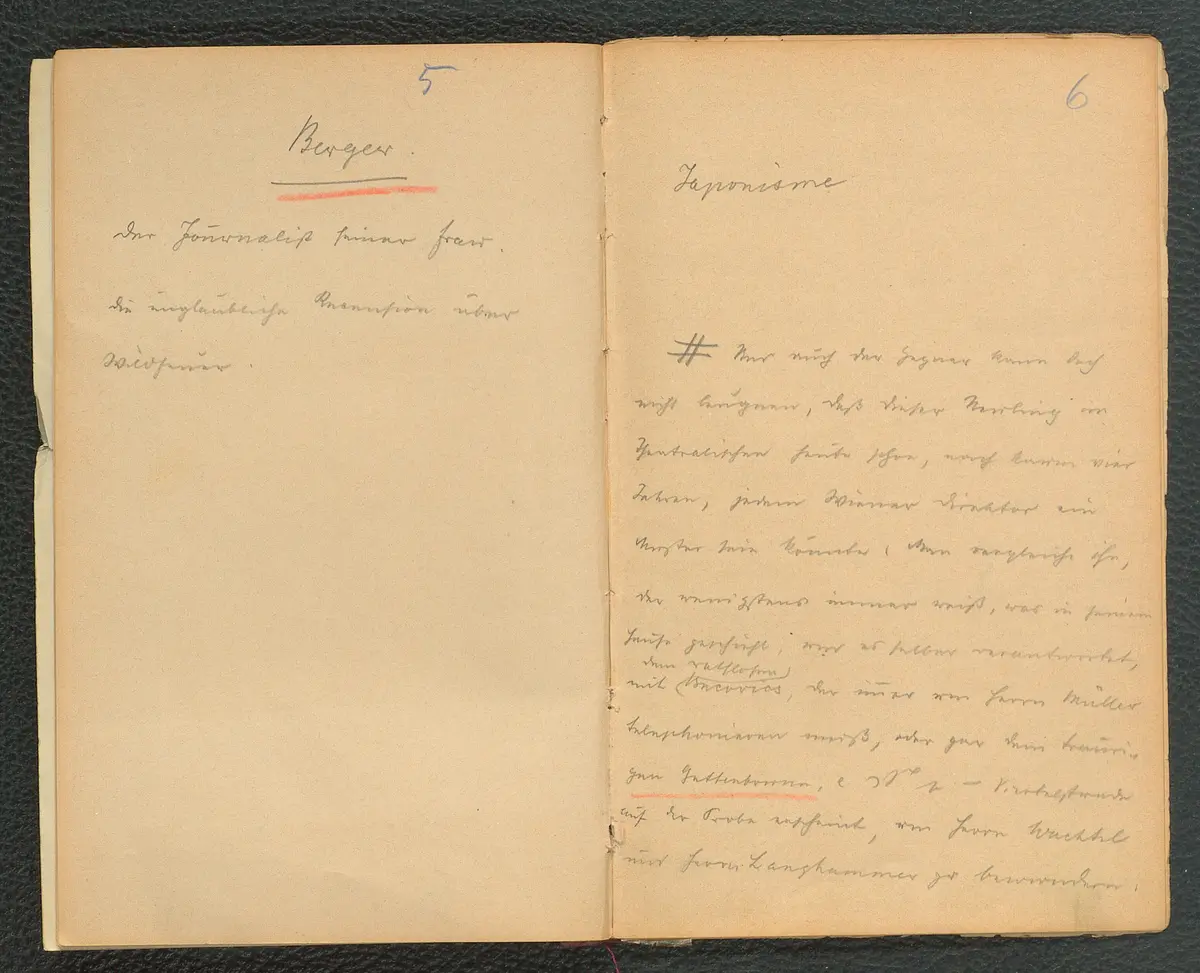 5
Berger.
der Journalist seiner Frau.
die unglaubliche Recension über
Wildfeuer.
6
Japonisme
# Nur auch der Gegner kann doch
nicht leugnen, daß dieser Neuling im
Theatralischen heute schon, nach kaum vier
Jahren, jedem Wiener Direktor ein
Muster sein könnte! Man vergleiche ihn,
der wenigstens immer weiß, was in seinem
Hause geschieht, und es selber verantwortet,
dem ratlosen
mit Bukovics, der immer von Herrn Müller
telephonieren muß, oder gar dem trauri-
gen Gettenbrunn, – Viertelstunde
auf der Probe erscheint, um Herrn Wachtel
und Herrn Langkammer zu bewundern.